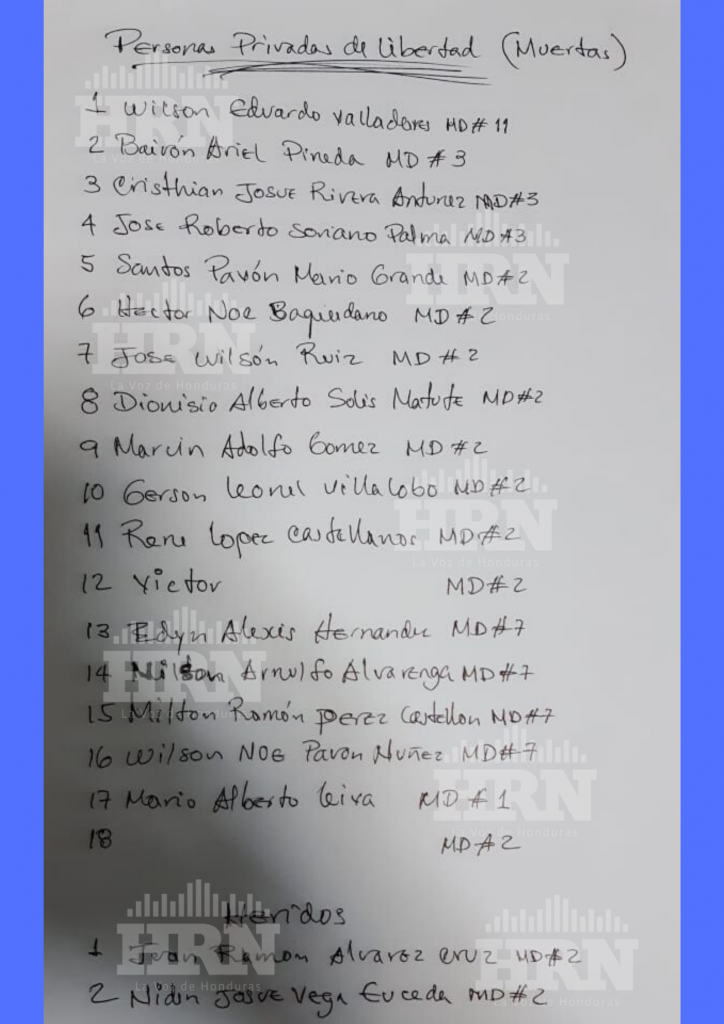 Personas Privadas de libertad (Muertas)
1 Wilson Eduardo Valladores MD# 11
2 Bairón Ariel Pineda MD # 3
3 Cristhian Josue Rivera Antunez MD#3
4 Jose Roberto Soriano Palma MD#3
5 Santos Pavón Mario Grande MD#2
6 Hector Noe Baquedano MD#2
7 Jose Wilsón Ruiz MD #2
8 Dionisio Alberto Solis Matute MD#2
9 Marvin Adolfo Gomez MD #2
10 Gerson leonel Villalobo MD#2
11 Rene lopez Castellanos MD#2
12 Victor MD#2
13 Edyn Alexis Hernandez MD#7
14 Nilson Arnulfo Alvarenga MD#7
15 Milton Ramón perez Castellon MD#7
16 Wilson NOE Pavon Nuñez MD#7
17 Mario Alberto leiva MD #1
18 MD#2
Heridos
1 Ramon Alvarez Cruz MD#2
2 Josue Vega Euceda MD#2
HRN
La Voz de Honduras